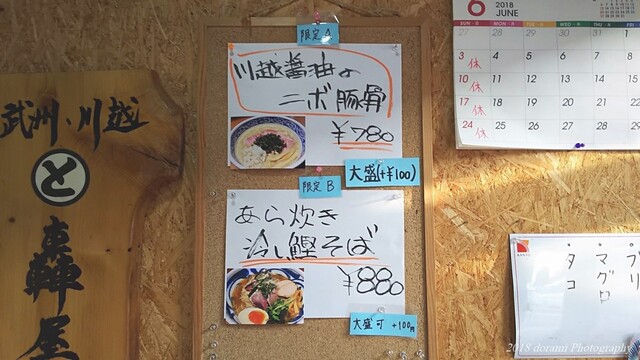 武州・川越
と
轟屋
限定A
川越醤油の
ニボ豚骨
¥780
大盛(+¥100)
限定B
あら炊き
冷し鰹そば
¥880
大盛可 +100円
6 2018
JUNE
SUN MON TUE WED THU FRI
27 28 29 30 31
3 休 4 5 6 7 8
10 休 11 12 13 14 15
17 休 18 19 20 21 22
24 休 25 26 27 28 29
・ブリ
・マグロ
・タコ
2018 dorami Photography